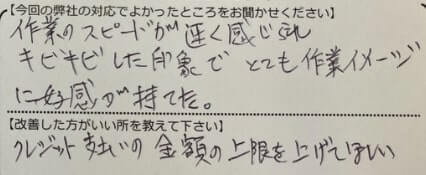 【今回の弊社の対応でよかったところをお聞かせください】
作業のスピードが速く感じられ
キビキビした印象で とても作業イメージ
に好感が持てた。
【改善した方がいい所を教えて下さい】
クレジット支払いの金額の上限を上げてほしい